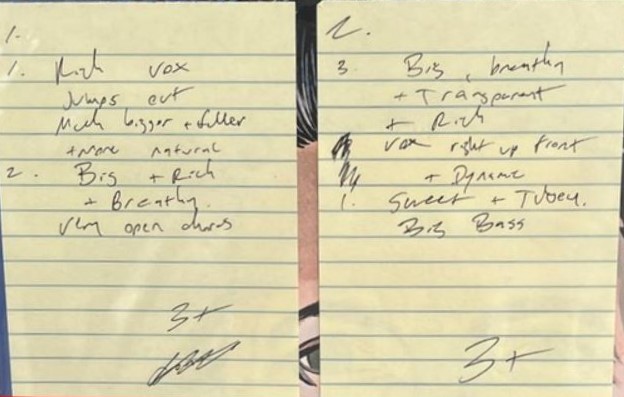 1.
1. Rich vox
Jumps out
Much bigger + fuller
+ more natural
2. Big + Rich
+ Breathy.
Very open chords
3+
2.
3. Big, breathy
+ Transparent
+ Rich
vox right up front
+ Dynamic
1. Sweet + Tubey.
Big Bass
3+